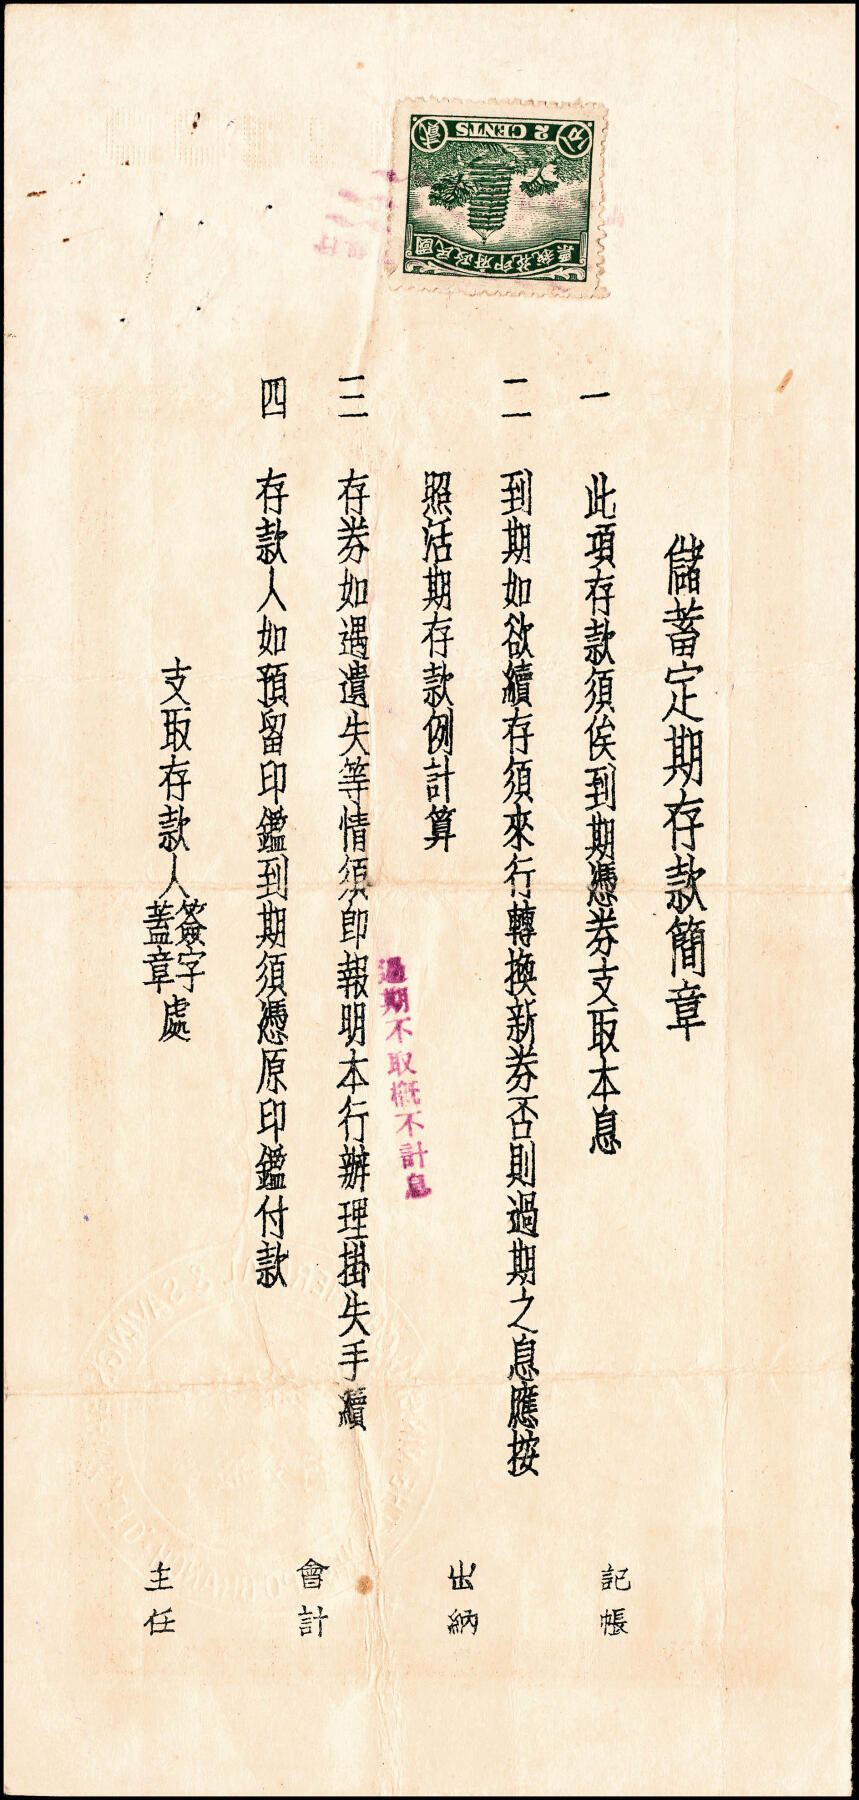 儲蓄定期存款簡章
一 此項存款須俟到期憑券支取本息
二 到期如欲續存須來行轉換新券否則過期之息應按
照活期存款例計算
過期不取概不計息
三 存券如遇遺失等情須即報明本行辦理掛失手續
四 存款人如預留印鑑到期須憑原印鑑付款
支取存款人簽字蓋章處
記帳
出納
會計
主任
國民政府印花稅票
貳分
2 CENTS